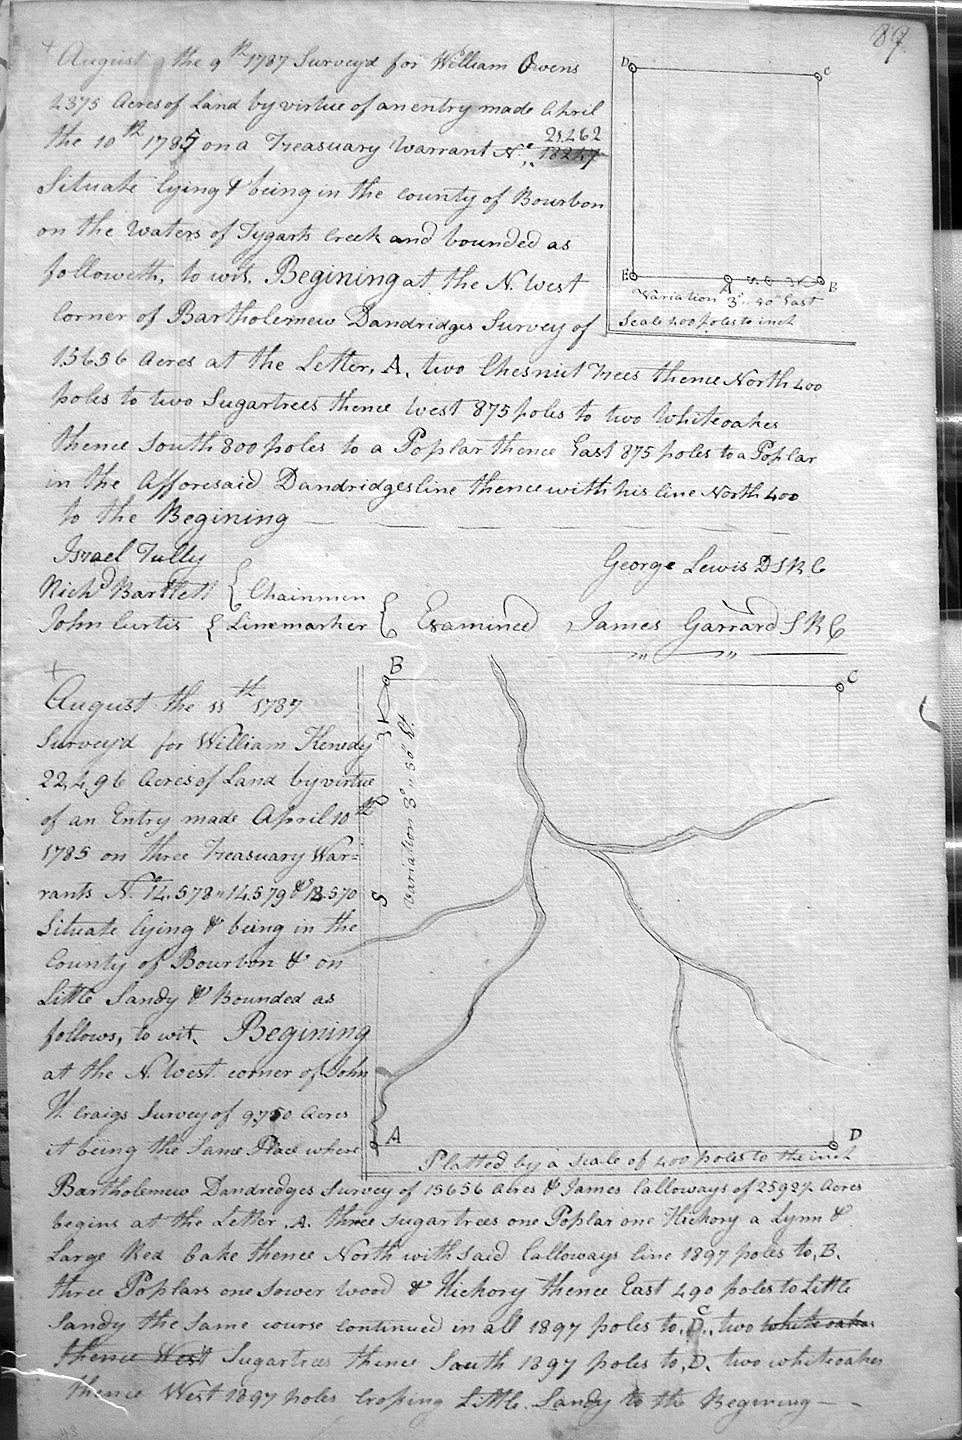 89.
August the 9th 1787 Surveyd for William Owens
4375 Acres of Land by virtue of an entry made April
the 10th 1785 on a Treasuary Warrant No. 18247
21262
Situate lying & being in the county of Bourbon
on the waters of Tygarts Creek and bounded as
followeth, to wit. Begining at the N. West
Corner of Bartholemew Dandridges Survey of
15656 Acres at the Letter, A, two Chesnut Trees thence North 400
poles to two Sugartrees thence West 875 poles to two Whiteoakes
thence South 800 poles to a Poplar thence East 875 poles to a Poplar
in the Afforesaid Dandridges line thence with his line North 400
to the Begining
D C
E A B
Variation 3° 20" East
Scale 400 poles to inch
Israel Tully
Richd Bartlett Chainmen
John Curtis Linemarker
George Lewis D S B C
Examined James Garrard S B C
August the 11th 1787
Surveyd for William Kenedy
22,496 Acres of Land by virtue
of an Entry made April 10th
1785 on three Treasuary War=
rants No. 14.578 " 14.579 & 18.570
Situate lying & being in the
County of Bourbon & on
Little Sandy & Bounded as
follows, to wit. Begining
at the N. West corner of John
H. Craigs Survey of 9750 Acres
it being the Same Place where
Bartholemew Dandredges Survey of 15656 Acres & James Calloways of 25927 Acres
begins at the Letter A. three Sugartrees one Poplar one Hickory a Lynn &
Large Red Oake thence North with said Calloways line 1897 poles to, B.
three Poplars one Sower wood & Hickory thence East 490 poles to Little
Sandy the Same course continued in all 1897 poles to, C, two whiteoakes
thence West Sugartrees thence South 1897 poles to, D. two whiteoakes
thence West 1897 poles Crossing Little Sandy to the Begining
B C
A D
Variation 3° 30" Et.
Platted by a Scale of 400 poles to the inch